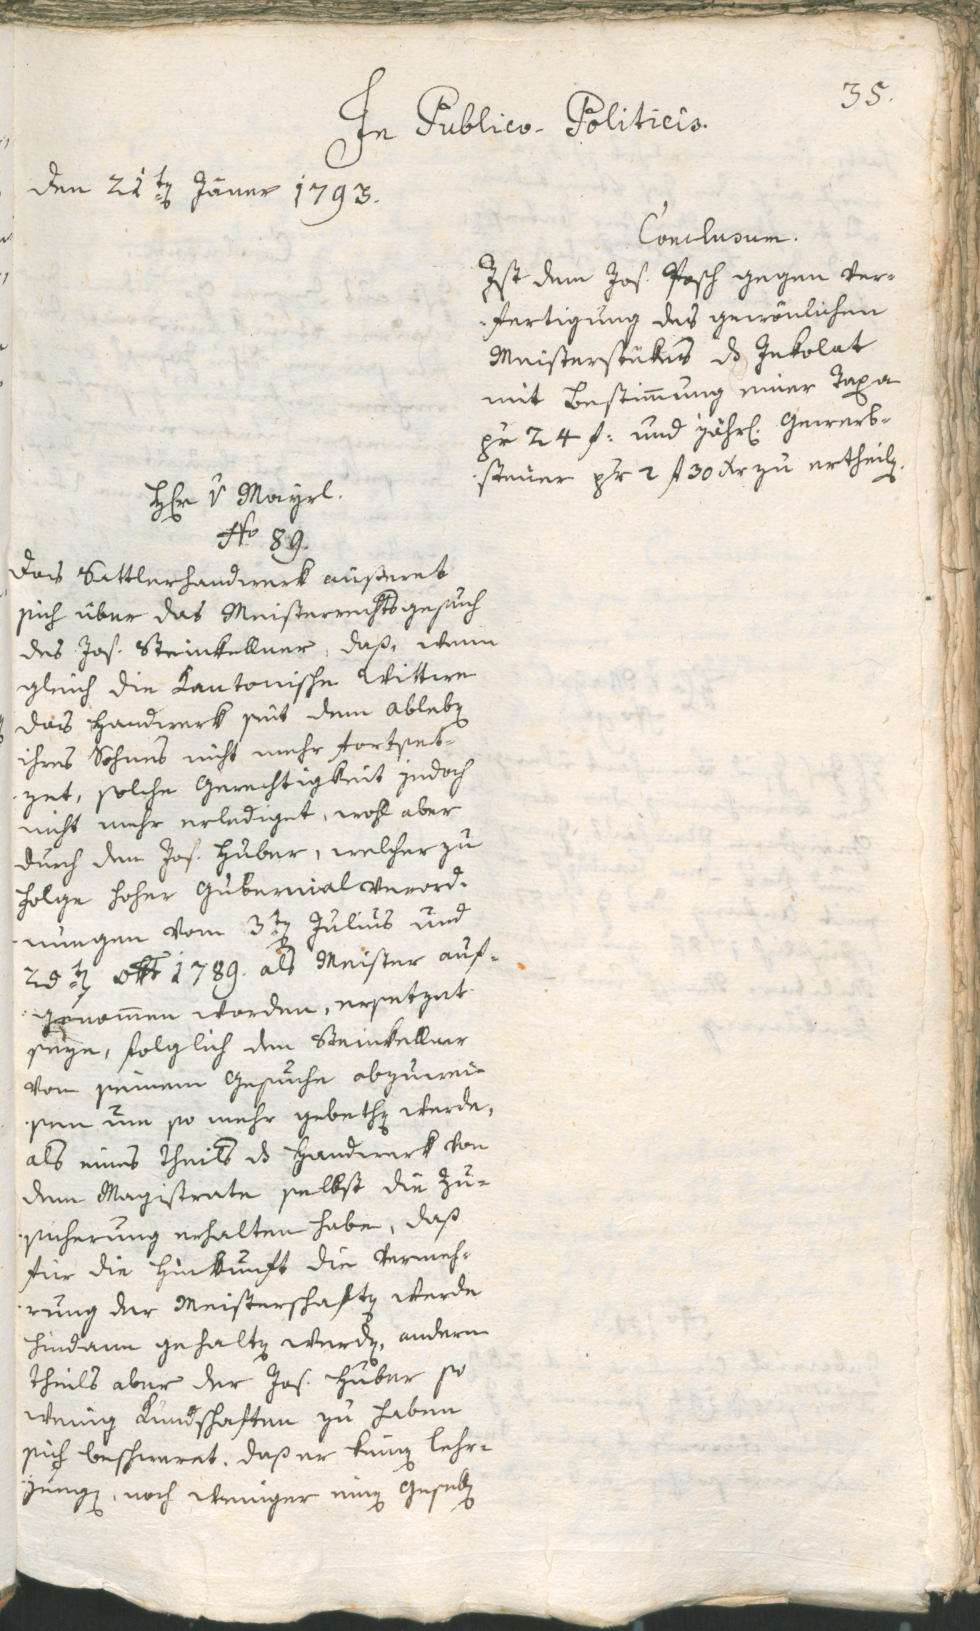 35.
In Publico-Politicis.
den 21ten Jäner 1793.
Conclusum.
Ist dem Jos. Posch gegen Ver-
fertigung des gewönlichen
Meisterstükes ds Inkolat
mit Bestim̄ung einer Taxa
pr 24 f: und jährl. Gewerb-
steuer pr 2 f 30 Xr zu ertheilen.
Hr v Mayrl.
No 89.
Das Sattlerhandwerk äußeret
sich über das Meisterrechtsgesuch
des Jos. Steinkellner, daß, wenn
gleich die Kantonische Wittwe
das Handwerk seit dem ableben
ihres Sohnes nicht mehr fortset-
zet, solche Gerechtigkeit jedoch
nicht mehr erlediget, wohl aber
durch den Jos. Huber, welcher zu
folge hoher Gubernial Verord-
nungen vom 3ten Julius und
28ten 8br 1789. als Meister auf-
genom̄en worden, ersetzet
seye, folglich den Steinkellner
von seinem Gesuche abzuwei-
sen um so mehr gebethen werde,
als eines theils ds Handwerk von
dem Magistrate selbst die Zu-
sicherung erhalten habe, daß
für die Hinkunft die Vermeh-
rung der Meisterschaften werde
hindann gehalten werden, andern
theils aber der Jos. Huber so
wenig Kundschaften zu haben
sich beschweret, daß er keinen lehr-
jungen, noch weniger einen Gesellen